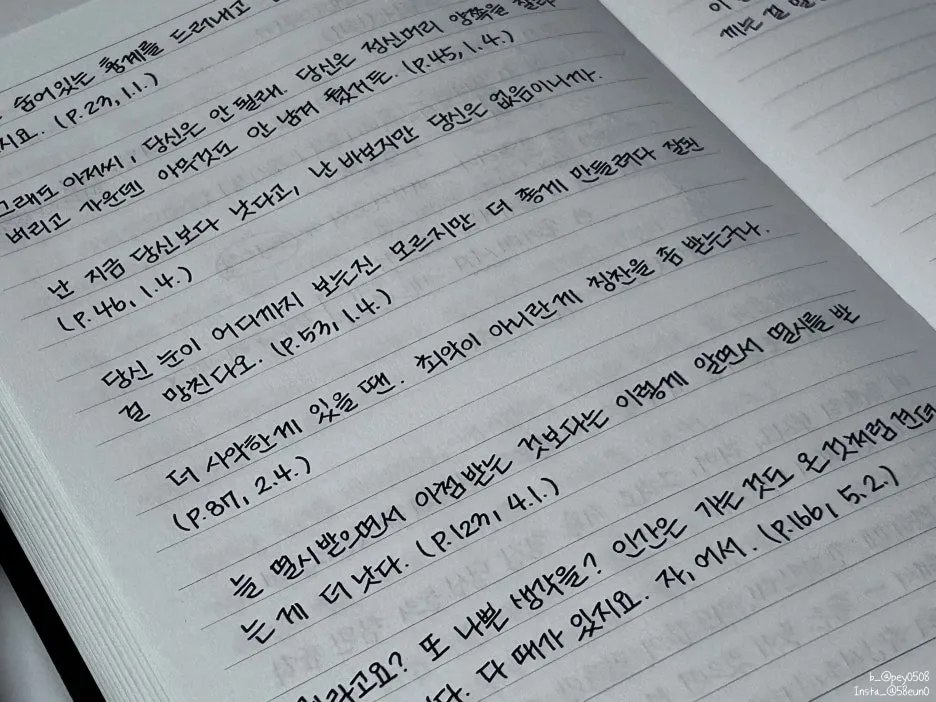 숨어있는 흉계를 드러내고
지요. (p.23, 1.1.)
그래도 아저씨, 당신은 안 될래. 당신은 정신머리 양쪽을 잘라
버리고 가운데 아무것도 안 남겨 뒀거든. (p.45, 1.4.)
난 지금 당신보다 낫다고, 난 바보지만 당신은 없음이니까.
(p.46, 1.4.)
당신 눈이 어디까지 보는진 모르지만 더 좋게 만들려다 잘된
걸 망친다오. (p.53, 1.4.)
더 사악한 게 있을 땐. 최악이 아니란 게 칭찬을 좀 받는구나.
(p.87, 2.4.)
늘 멸시받으면서 아첨받는 것보다는 이렇게 알면서 멸시를 받
는 게 더 낫다. (p.127, 4.1.)
라고요? 또 나쁜 생각을? 인간은 가는 것도 온 것처럼 견뎌
다. 다 때가 있지요. 자, 어서. (p.166, 5.2.)
이
께는 걸 말
b_@pey0508
Insta_@58eun0